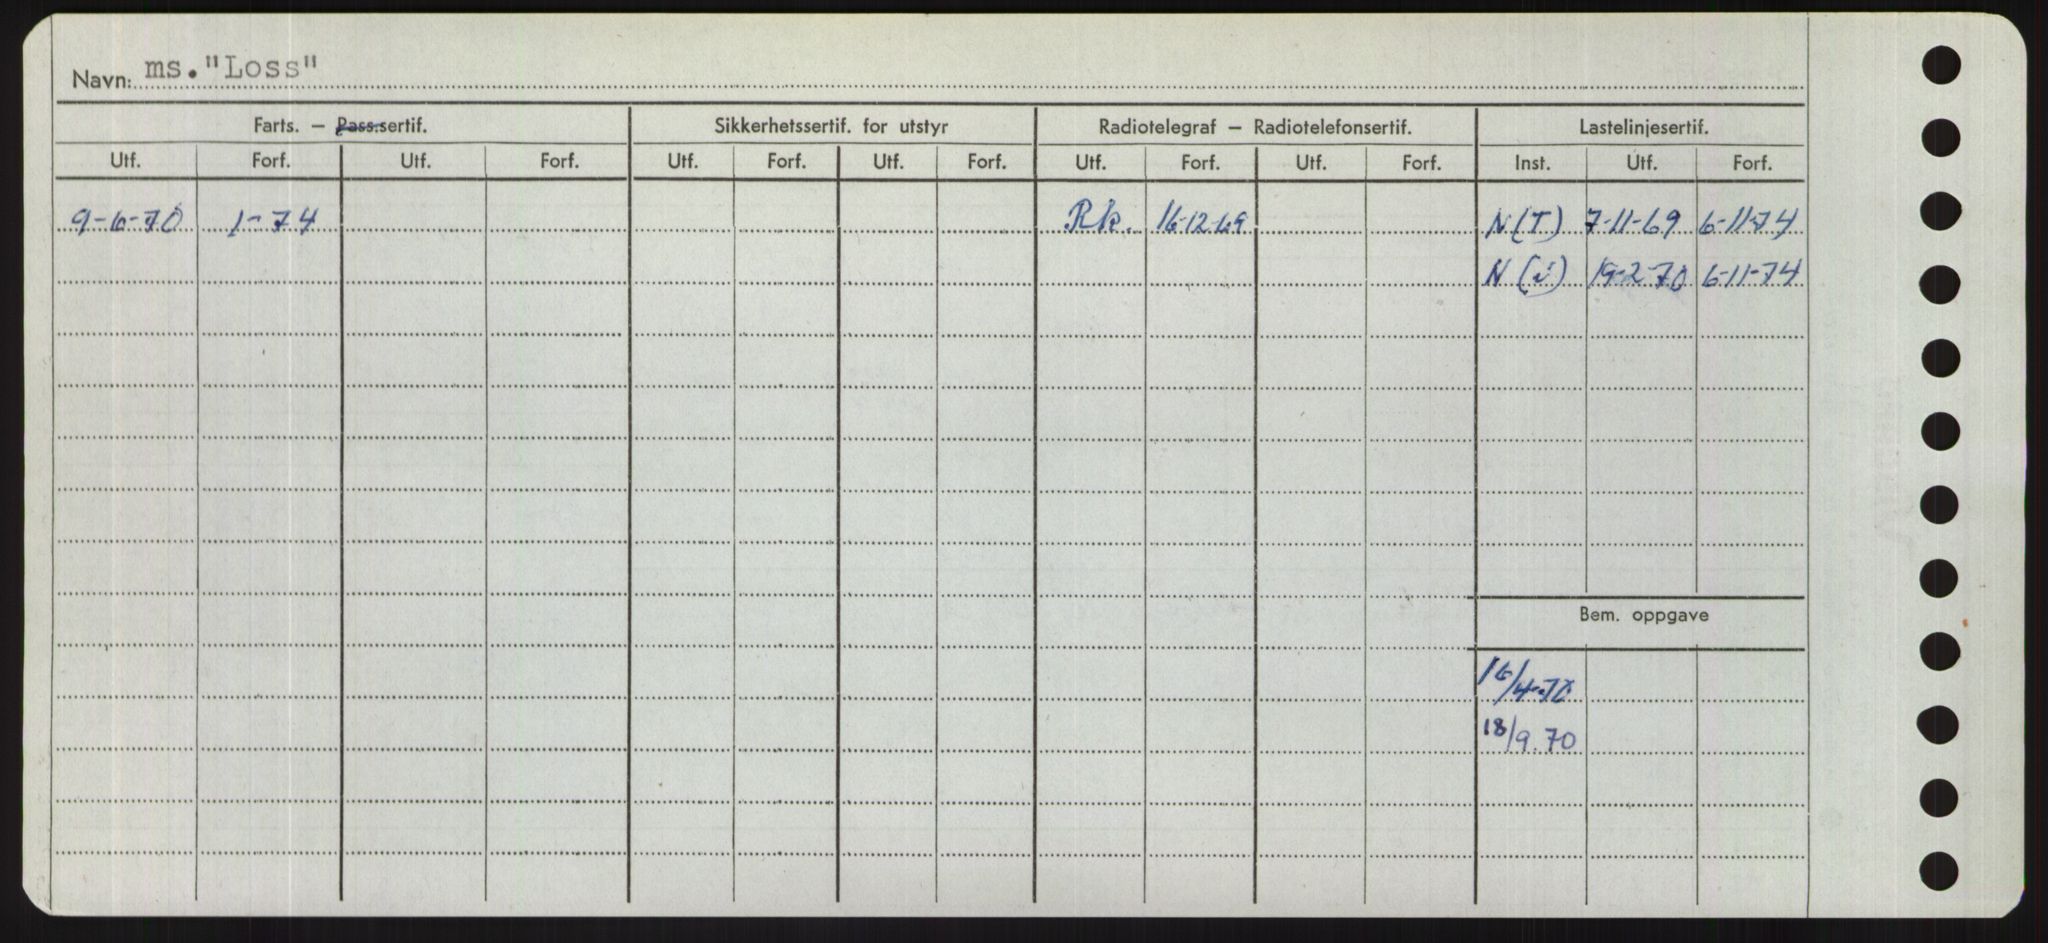 Navn: ms. "Loss"
Farts. — Pass.sertif. Sikkerhetssertif. for utstyr Radiotelegraf — Radiotelefonsertif. Lastelinjesertif.
Utf. Forf. Utf. Forf. Utf. Forf. Utf. Forf. Utf. Forf. Utf. Forf. Inst. Utf. Forf.
9-6-70 1-74 Rk. 16-12-69 N (T) 7-11-69 6-11-74
N 19-2-70 6-11-74
Bem. oppgave
16/4-70
18/9.70